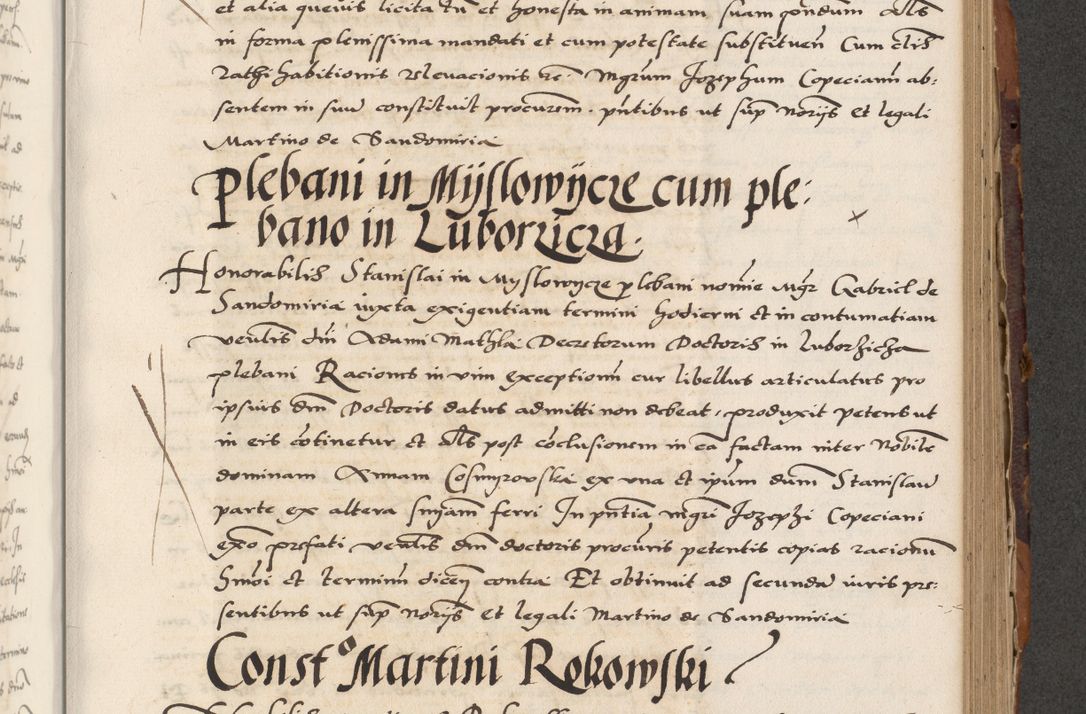 et alia quevis licita tn̄ et honesta in animam suam ꝓndum Als
in forma plenissima mandati et cum potestate substituen̄ Cum clīs
Rathi habitionis relevacionis etc. Mgrum Jozephum Copecianū ab:
sentem in suū constituit procurem̄. pn̄tibus ut supͣ noriis Et legali
Martino de Sandomiria
Plebani in Mijslowijcze cum ple:
bano in Luborzicza.
Honorabilis Stanislai in Myslowycze plebani nomīe Mgr Gabriel de
Sandomiria iuxta exigentiam termini hodierni Et in contumatiam
venlīs dn̄i Adami Mathlai Decretorum Doctoris in Luborzicza
plebani Raciones in vim exceptionū cur libellus articulatus pro
ipsius dn̄i Doctoris datus admitti non debeat, produxit petens ut
in eis cōtinetur Et Als post cōclusionem in cā factam inter Nobilē
dominam Annam Cosmyrovska ex una Et ipūm dn̄um Stanislaū
parte ex altera sn̄iam ferri In pn̄tia mgri Jozephi Copeciani
exo prefati venlīs dn̄i doctoris procūris petentis copias racionū
hmōi Et terminū dicen̄ contra Et obtinuit ad secundā iuris pre:
sentibus ut supͣ noriis Et legali Martino de Sandomiria
Constᵒ Martini Rokowski